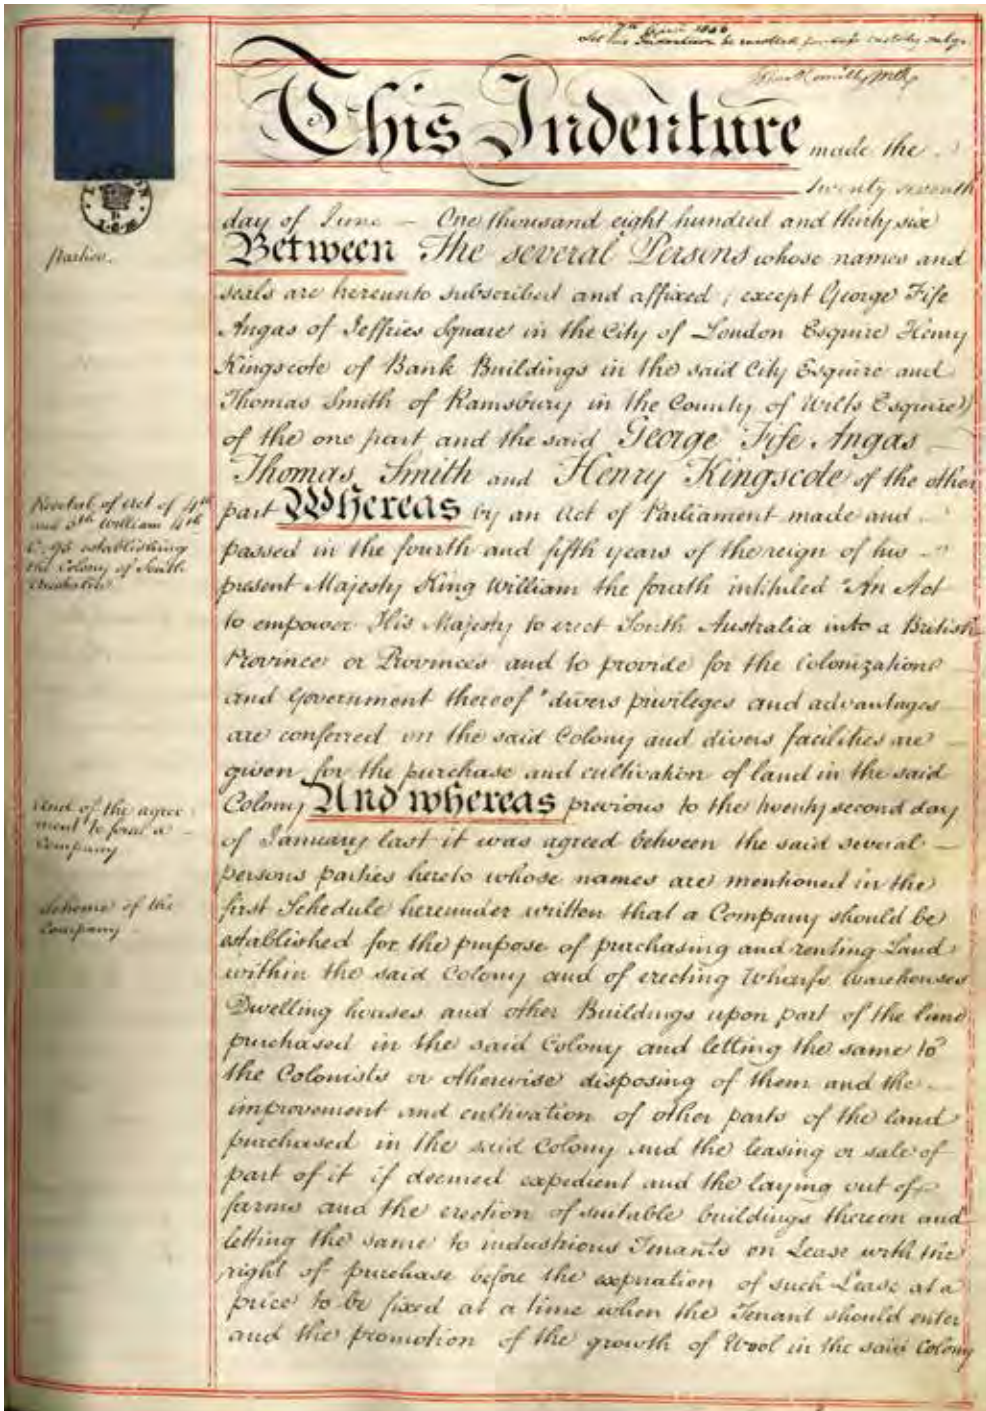 7th April 1836
Let this Indenture be enrolled for safe custody only.
This Indenture made the
twenty seventh
day of June — One thousand eight hundred and thirty six
Between The several Persons whose names and
seals are hereunto subscribed and affixed ; except George Fife
Angas of Jeffries Square in the City of London Esquire Henry
Kingscote of Bank Buildings in the said City Esquire and
Thomas Smith of Ramsbury in the County of Wilts Esquire)
of the one part and the said George Fife Angas
Thomas Smith and Henry Kingscote of the other
part Whereas by an Act of Parliament made and
passed in the fourth and fifth years of the reign of his
present Majesty King William the fourth intituled "An Act
to empower His Majesty to erect South Australia into a British
Province or Provinces and to provide for the Colonization
and Government thereof" divers privileges and advantages
are conferred on the said Colony and divers facilities are
given for the purchase and cultivation of land in the said
Colony And whereas previous to the twenty second day
of January last it was agreed between the said several
persons parties hereto whose names are mentioned in the
first Schedule hereunder written that a Company should be
established for the purpose of purchasing and renting Land
within the said Colony and of erecting Wharfs Warehouses
Dwelling houses and other Buildings upon part of the land
purchased in the said Colony and letting the same to
the Colonists or otherwise disposing of them and the
improvement and cultivation of other parts of the land
purchased in the said Colony and the leasing or sale of
part of it if deemed expedient and the laying out of
farms and the erection of suitable buildings thereon and
letting the same to industrious Tenants on Lease with the
right of purchase before the expiration of such Lease at a
price to be fixed at a time when the Tenant should enter
and the promotion of the growth of Wool in the said Colony
parties.
Recital of Act of 4th
and 5th William 4th
C. 95 establishing
the Colony of South
Australia
And of the agree
ment to form a
Company
Scheme of the
Company